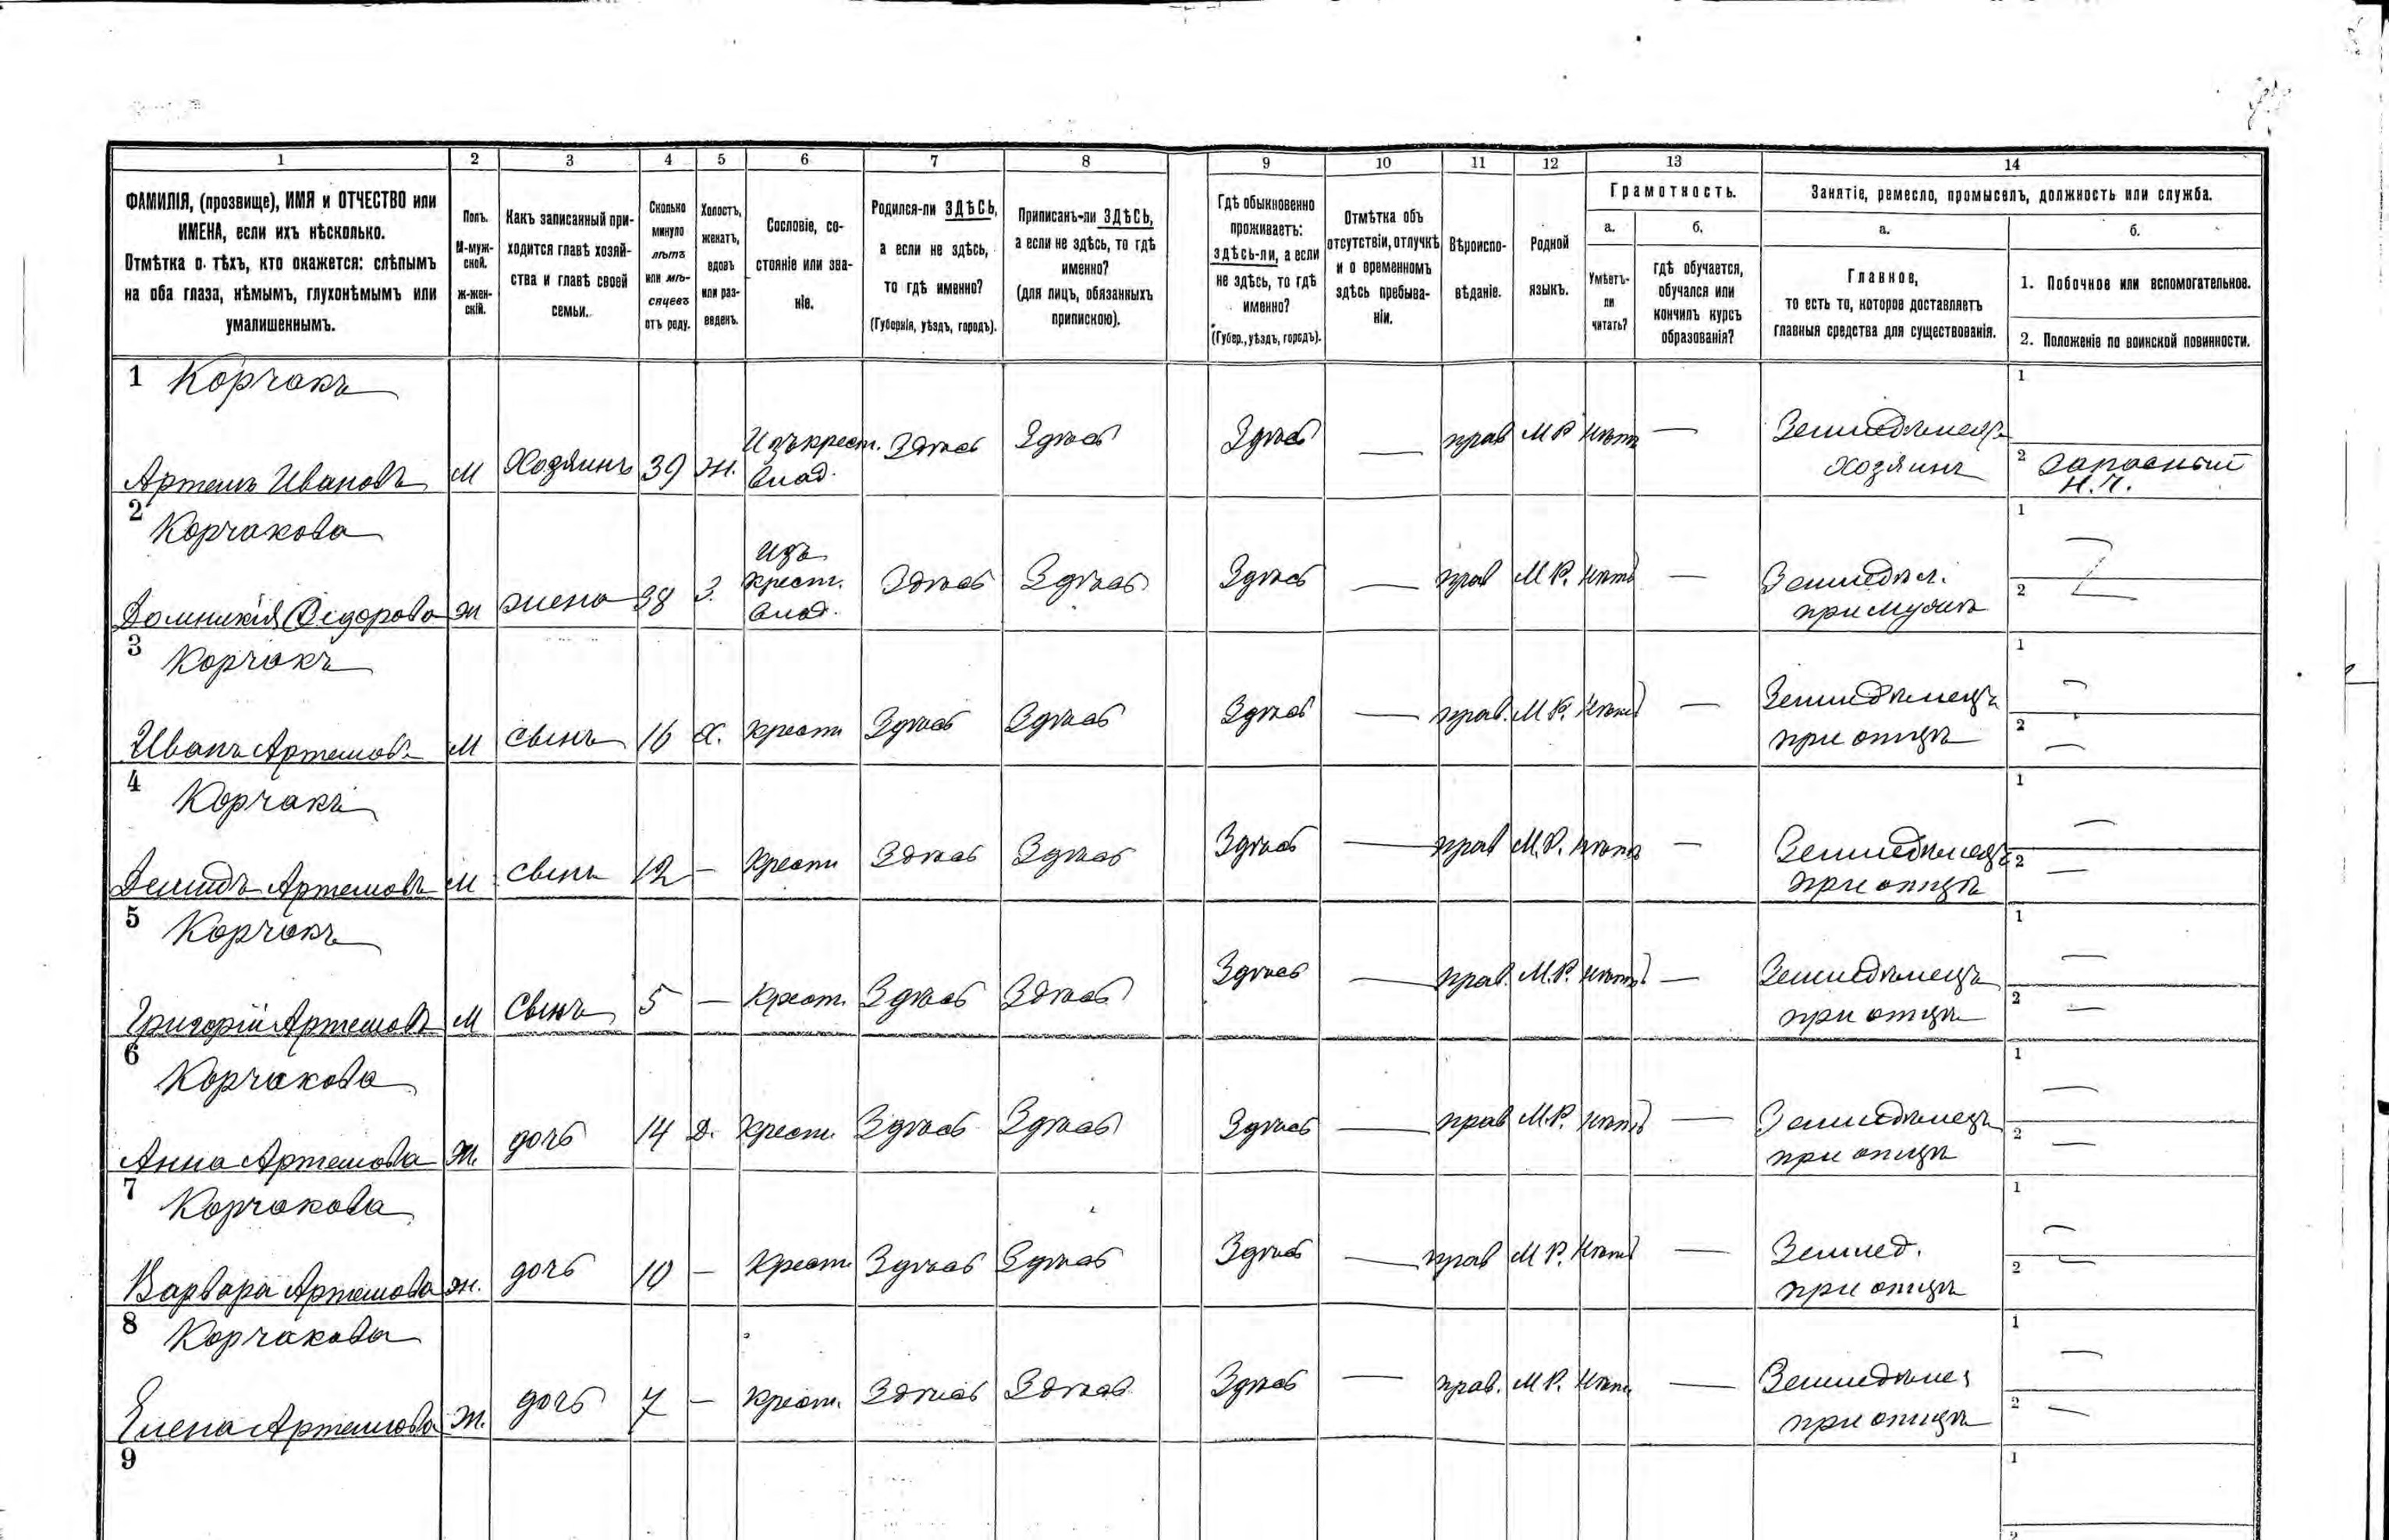 1 2 3 4 5 6 7 8 9 10 11 12 13 14
ФАМИЛІЯ, (прозвище), ИМЯ и ОТЧЕСТВО или
ИМЕНА, если ихъ нѣсколько.
Отмѣтка о тѣхъ, кто окажется: слѣпымъ
на оба глаза, нѣмымъ, глухонѣмымъ или
умалишеннымъ.
Полъ.
М-муж-
ской.
ж-жен-
скій.
Какъ записанный при-
ходится главѣ хозяй-
ства и главѣ своей
семьи.
Сколько
минуло
лѣтъ
или мѣ-
сяцевъ
отъ роду.
Холостъ,
женатъ,
вдовъ
или раз-
веденъ.
Сословіе, со-
стояніе или зва-
ніе.
Родился-ли ЗДѢСЬ,
а если не здѣсь,
то гдѣ именно?
(Губернія, уѣздъ, городъ).
Приписанъ-ли ЗДѢСЬ,
а если не здѣсь, то гдѣ
именно?
(для лицъ, обязанныхъ
припискою).
Гдѣ обыкновенно
проживаетъ:
здѣсь-ли, а если
не здѣсь, то гдѣ
именно?
(Губер., уѣздъ, городъ).
Отмѣтка объ
отсутствіи, отлучкѣ
и о временномъ
здѣсь пребыва-
ніи.
Вѣроиспо-
вѣданіе.
Родной
языкъ.
Грамотность.
а.
Умѣетъ-
ли
читать?
б.
гдѣ обучается,
обучался или
кончилъ курсъ
образованія?
Занятіе, ремесло, промыселъ, должность или служба.
а.
Главное,
то есть то, которое доставляетъ
главныя средства для существованія.
б.
1. Побочное или вспомогательное.
2. Положеніе по воинской повинности.
1 Корчакъ
Артемъ Ивановъ М Хозяинъ 39 Ж. Изъ крест. Здѣсь Здѣсь Здѣсь — прав М Р нѣтъ — Земледѣлецъ 1
влад. хозяинъ 2 запасный
Н.Ч.
2 Корчакова
Домникія Ѳедорова ж жена 38 З. Изъ Здѣсь Здѣсь Здѣсь — прав М.Р. нѣтъ — Земледѣл. 1 —
крест. при мужѣ 2 —
влад.
3 Корчакъ
Иванъ Артемовъ М сынъ 16 Х. крест Здѣсь Здѣсь Здѣсь — прав. М.Р. нѣтъ — Земледѣлецъ 1 —
при отцѣ 2 —
4 Корчакъ
Демидъ Артемовъ М сынъ 12 — крест Здѣсь Здѣсь Здѣсь — прав М.Р. нѣтъ — Земледѣлецъ 1 —
при отцѣ 2 —
5 Корчакъ
Григорій Артемовъ М Сынъ 5 — крест. Здѣсь Здѣсь Здѣсь — прав. М.Р. нѣтъ — Земледѣлецъ 1 —
при отцѣ 2 —
6 Корчакова
Анна Артемова Ж. дочь 14 Д. крест. Здѣсь Здѣсь Здѣсь — прав М.Р. нѣтъ — Земледѣлецъ 1 —
при отцѣ 2 —
7 Корчакова
Варвара Артемова ж. дочь 10 — крест. Здѣсь Здѣсь Здѣсь — прав М Р. нѣтъ — Землед. 1 —
при отцѣ 2 —
8 Корчакова
Елена Артемова Ж. дочь 7 — крест. Здѣсь Здѣсь Здѣсь — прав. М.Р. нѣтъ — Земледѣлец 1 —
при отцѣ 2 —
9 1
2